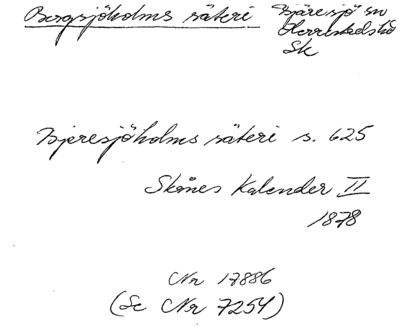 Bergsjöholms säteri
Bjäresjö sn
Herrestads hd
Sk
Bjeresjöholms säteri s. 625
Skånes Kalender II
1878
Nr 17886
(Se Nr 7254)